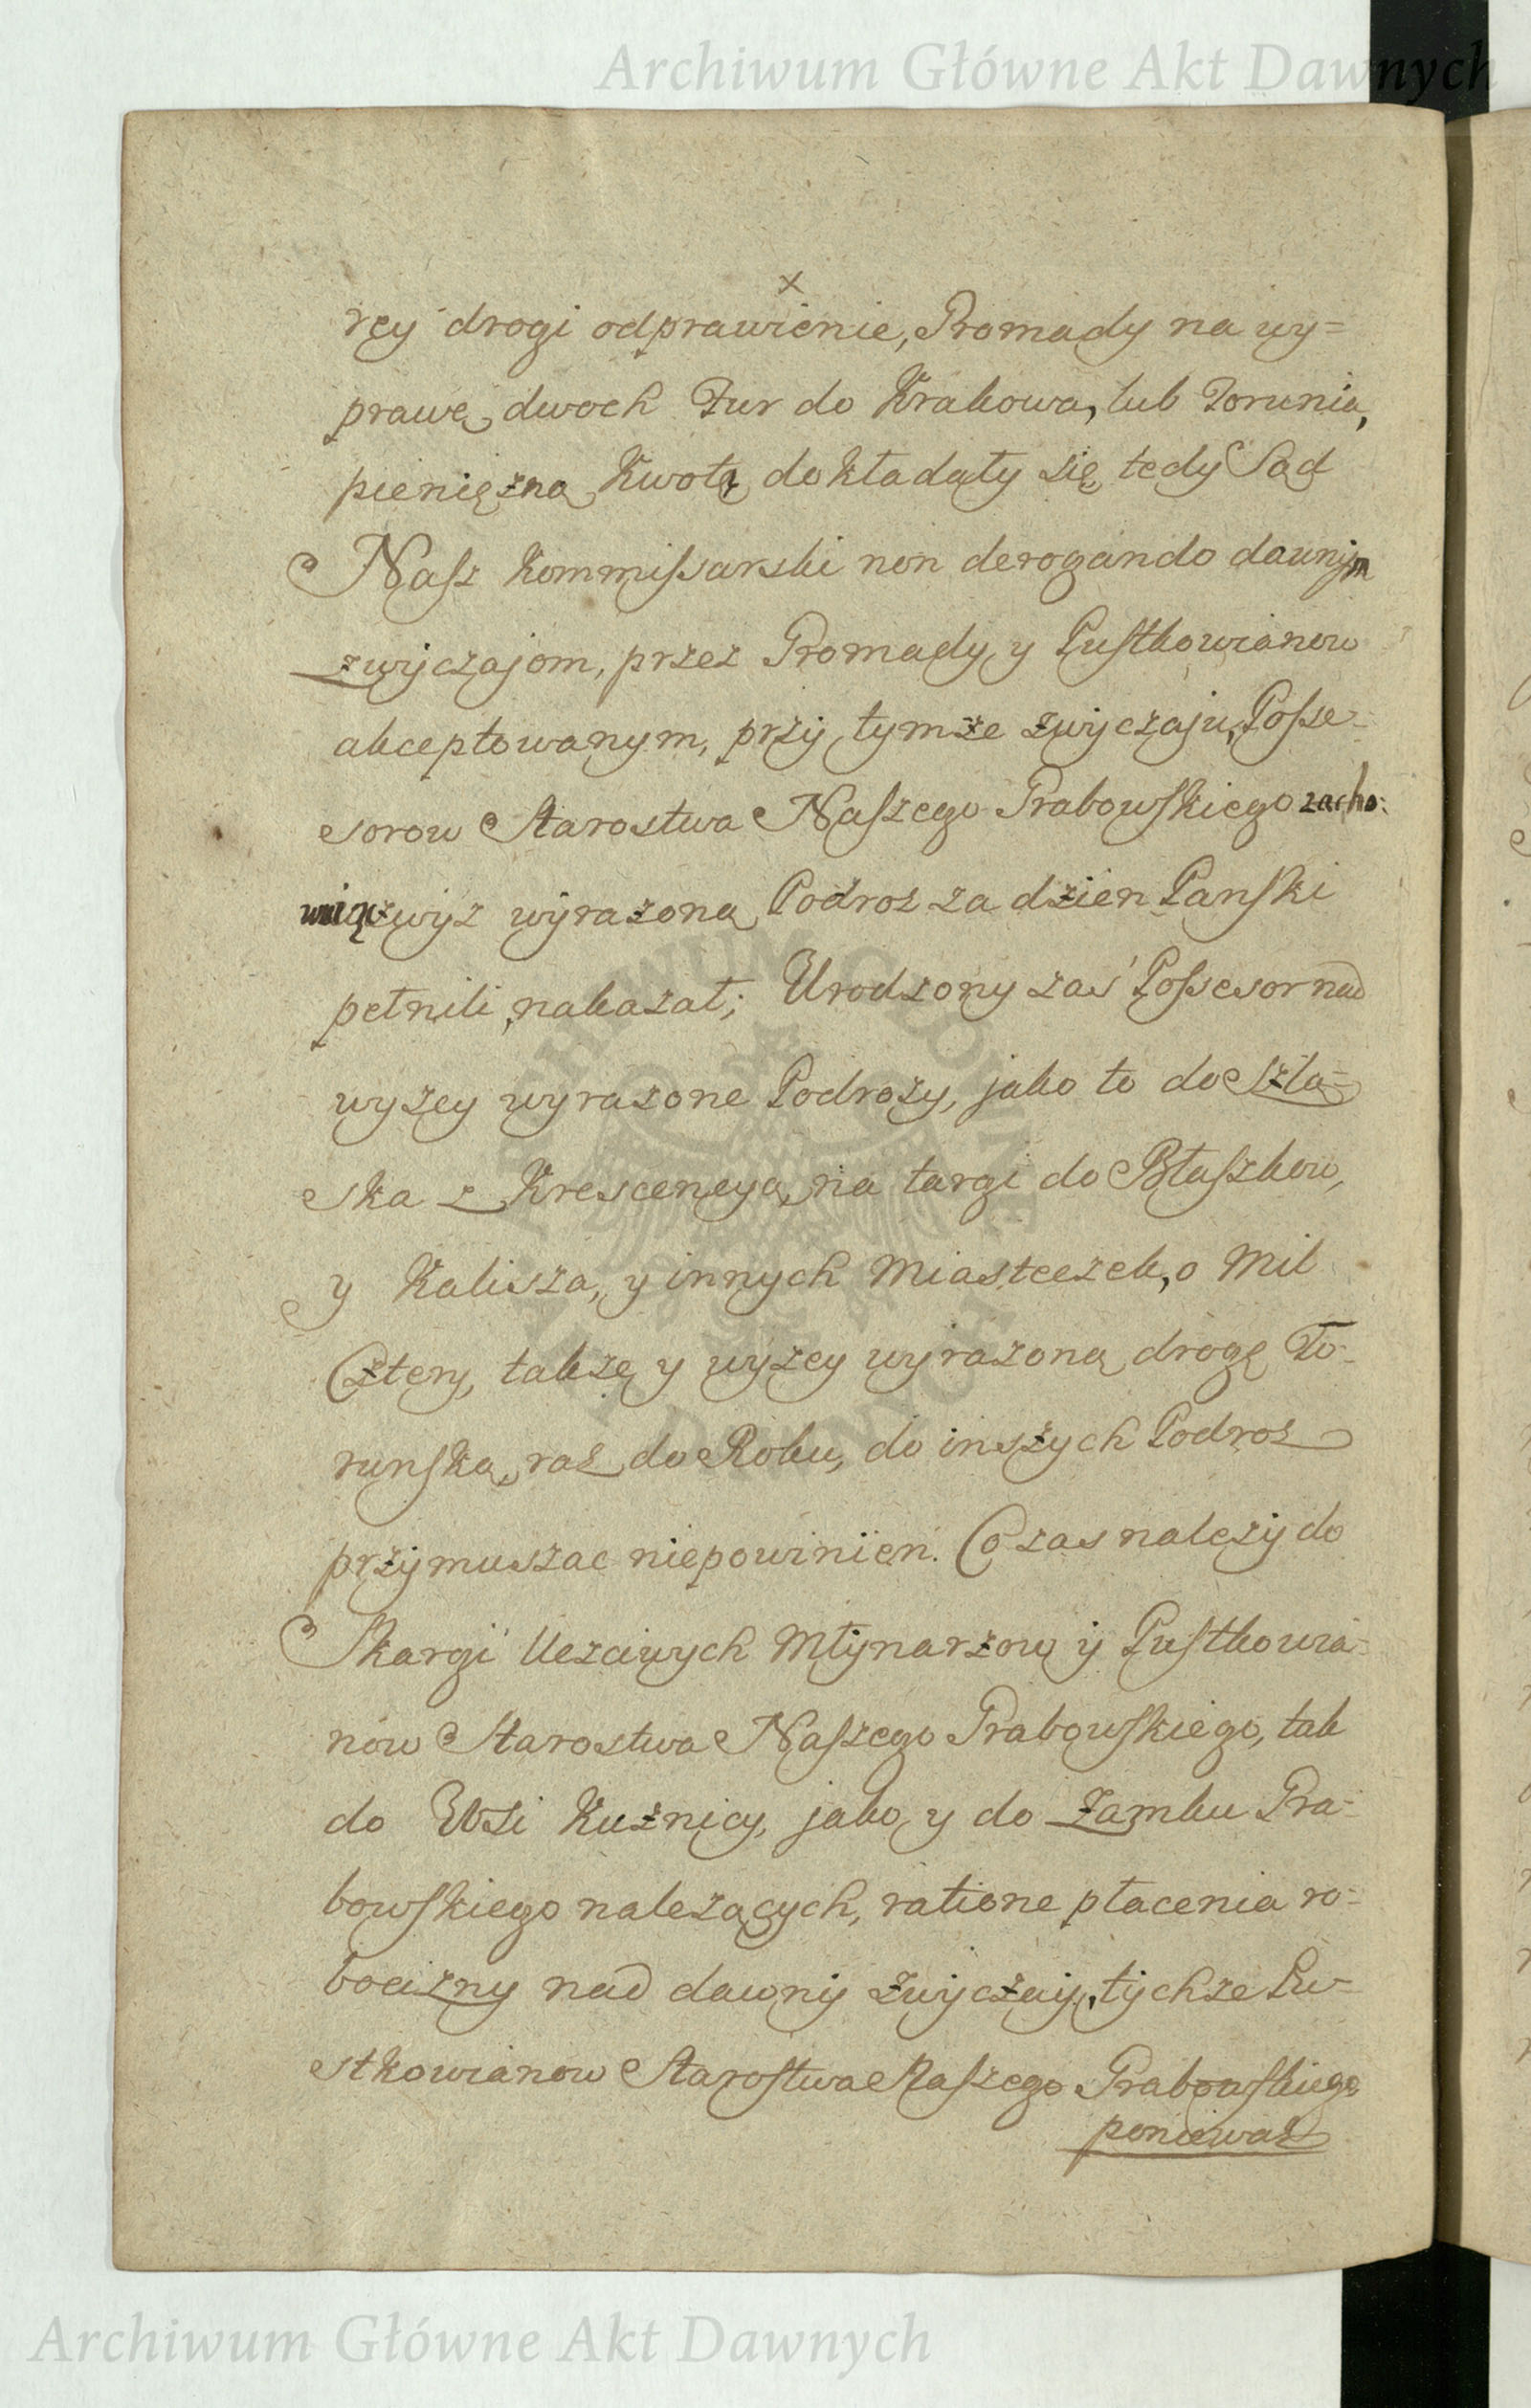 Archiwum Główne Akt Dawnych
x
rey drogi odprawienie, Gromady na wy=
prawę dwoch Fur do Krakowa, lub Torunia,
pieniężną Kwotą dokładały się, tedy Sąd
Nasz Kommissarski non derogando dawnym
zwyczajom, przez Gromady, y Pustkowianow
akceptowanym, przy tymże zwyczaju, Posse-
sorow Starostwa Naszego Grabowskiego zacho:
wując wyż wyrażoną Podroż za dzien Panski
pełnili, nakazał; Urodzony zaś Possesor nad
wyżey wyrażone Podroży, jako to do Szlą-
ska z Krescencyą, na targi do Błaszkow,
y Kalisza, y innych Miasteczek, o Mil
Cztery, także y wyżey wyrażoną drogę To-
runską, raz do Roku, do inszych Podroż
przymuszac niepowinien. Co zas należy do
Skargi Uczciwych Młynarzow y Pustkowia-
now Starostwa Naszego Grabowskiego, tak
do Wsi Kuźnicy, jako y do Zamku Gra-
bowskiego należących, ratione płacenia ro-
bocizny nad dawny zwyczay, tychże Pu-
stkowianow Starostwa Naszego Grabowskiego
ponieważ
Archiwum Główne Akt Dawnych